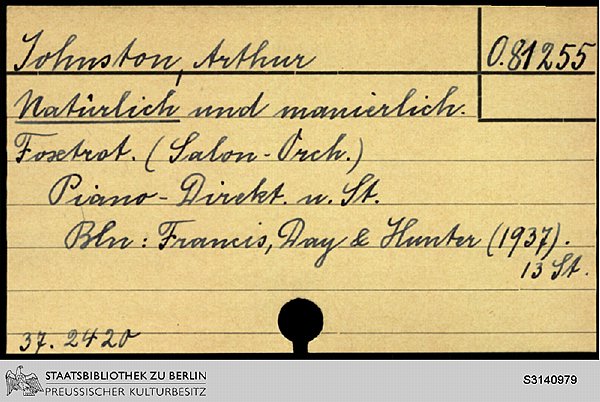 Johnston, Arthur
O.81255
Natürlich und manierlich.
Foxtrot. (Salon-Orch.)
Piano-Direkt. u. St.
Bln: Francis, Day & Hunter (1937).
13 St.
37. 2420
STAATSBIBLIOTHEK ZU BERLIN
PREUSSISCHER KULTURBESITZ
S3140979